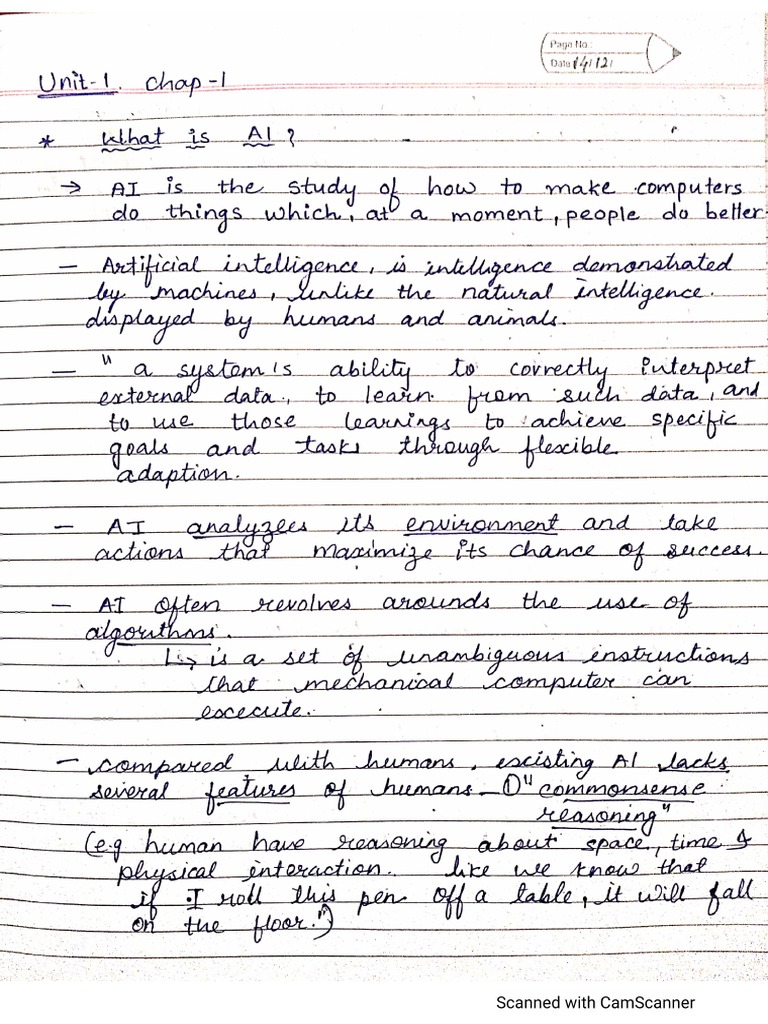 Page No.:
Date 14/12/
Unit-1. Chap-1
* What is AI?
→ AI is the study of how to make computers
do things which, at a moment, people do better
– Artificial intelligence, is intelligence demonstrated
by machines, unlike the natural intelligence.
displayed by humans and animals.
– " a system's ability to correctly interpret
external data, to learn from such data, and
to use those learnings to achieve specific
goals and tasks through flexible
adaption.
– AI analyzees its environment and take
actions that maximize its chance of success.
– AI often revolves arounds the use of
algorithms.
↳ is a set of unambiguous instructions
that mechanical computer can
excecute.
– compared with humans, excisting AI lacks
several features of humans – ① "commonsense
reasoning"
(e.g human have reasoning about space, time &
physical interaction. like we know that
if I roll this pen off a table, it will fall
on the floor.")
Scanned with CamScanner